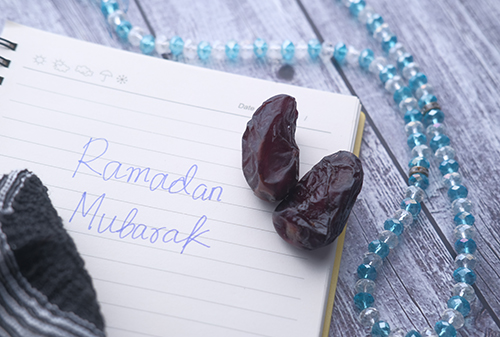 Date
Ramadan
Mubarak